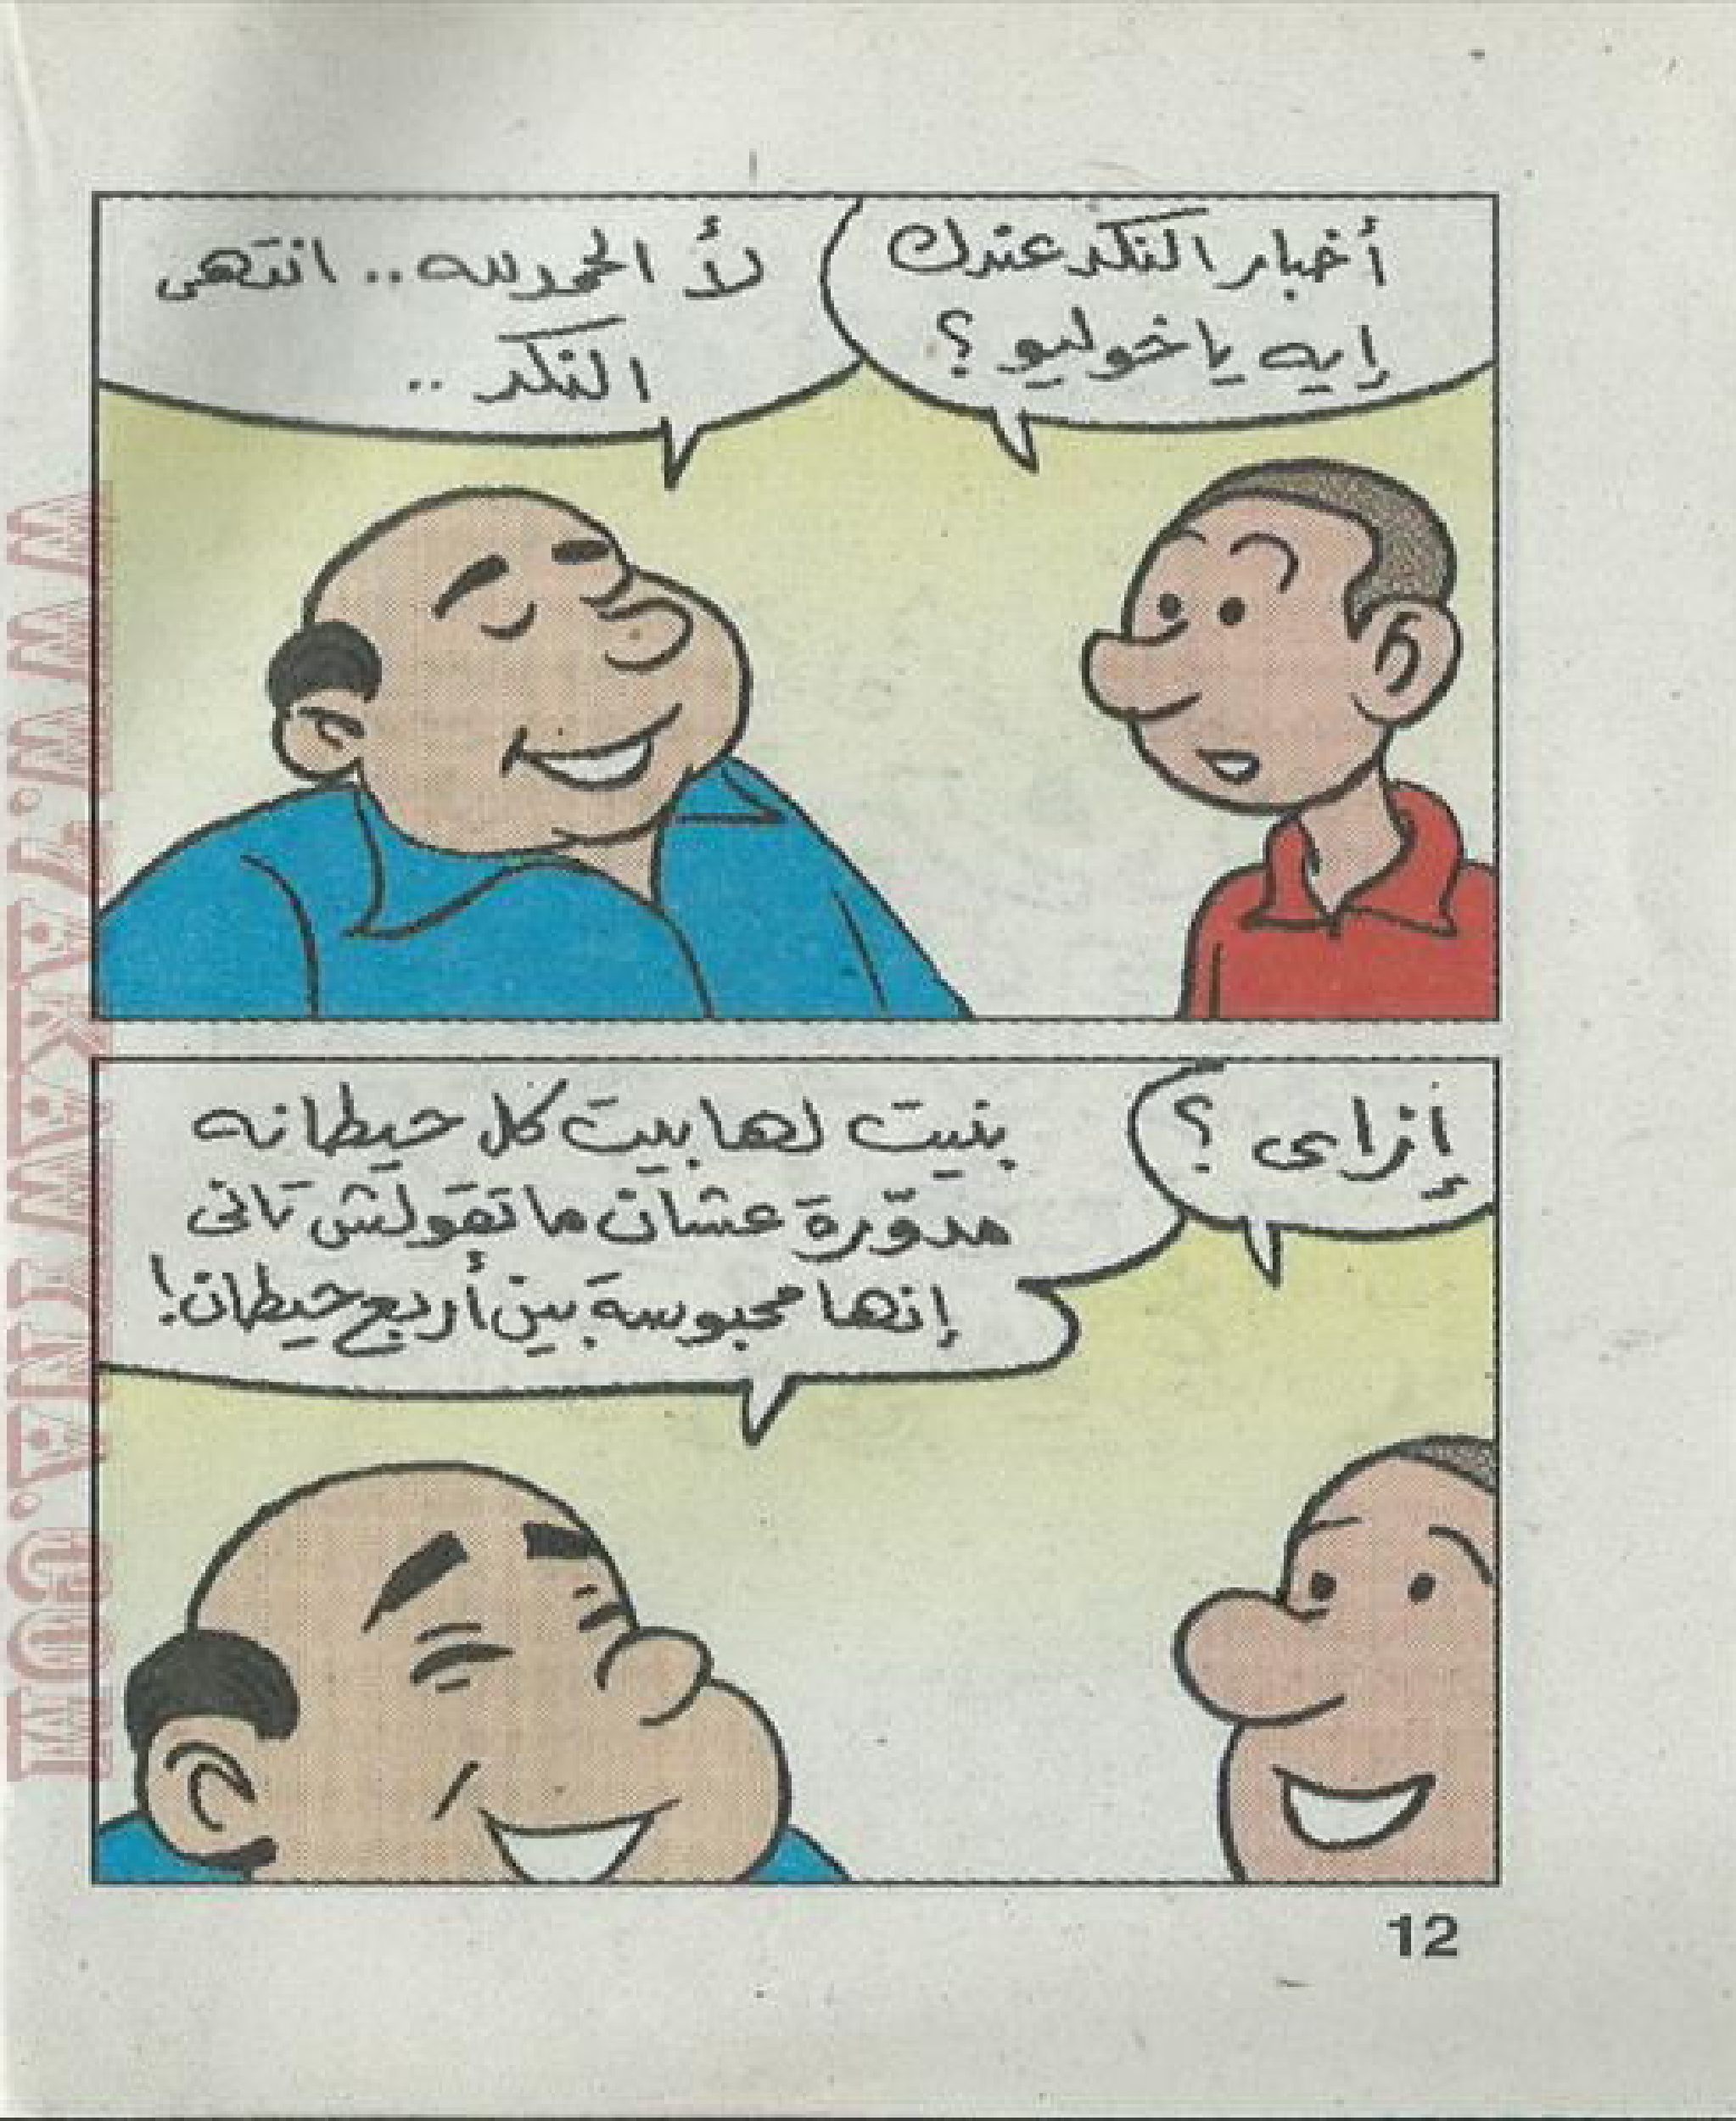 أخبار النكد عندك
إيه يا خوليو؟
لأ الحمد لله.. انتهى
النكد..
إزاى؟
بنيت لها بيت كل حيطانه
مدوّرة عشان ما تقولش تانى
إنها محبوسة بين أربع حيطان!
12
WWW.7AKAWINEA.COM